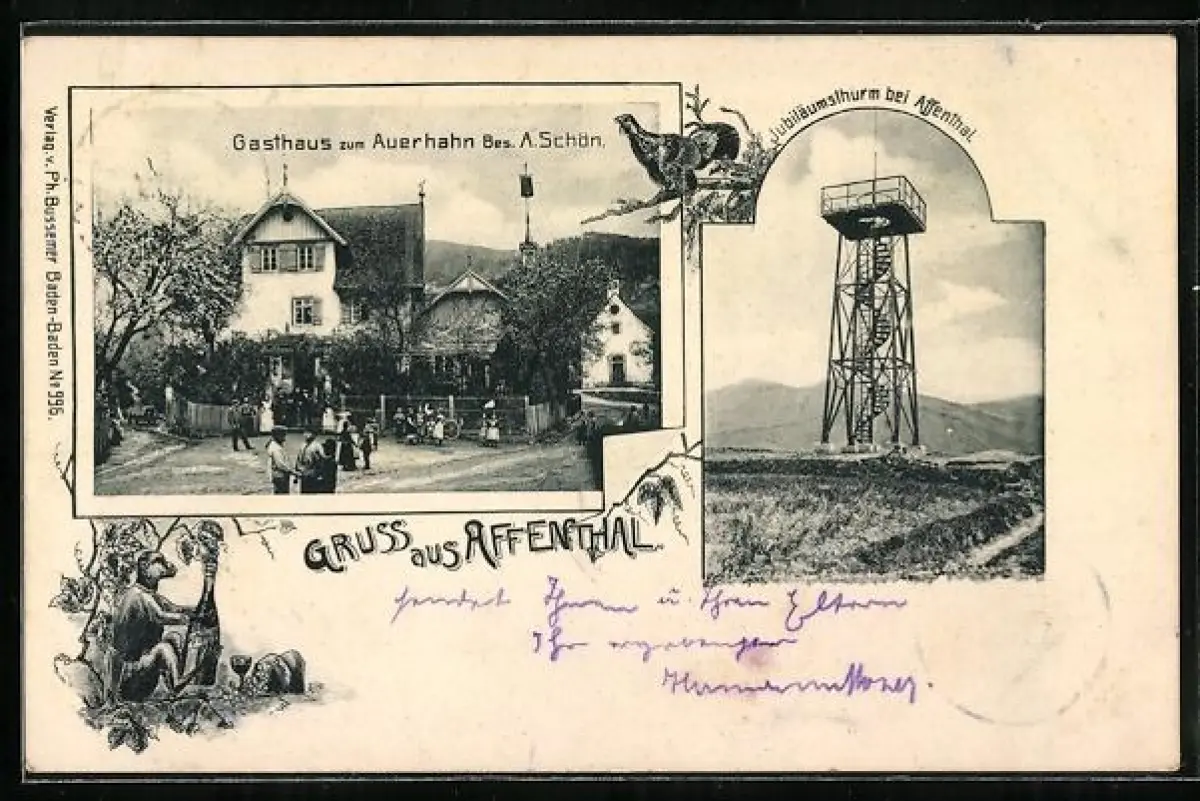 Gasthaus zum Auerhahn Bes. A. Schön.
Jubiläumsthurm bei Affenthal.
Verlag v. Ph. Bussemer Baden-Baden No 996.
GRUSS aus AFFENTHAL.
sendet Ihnen u. Ihren Eltern
Ihr ergebener